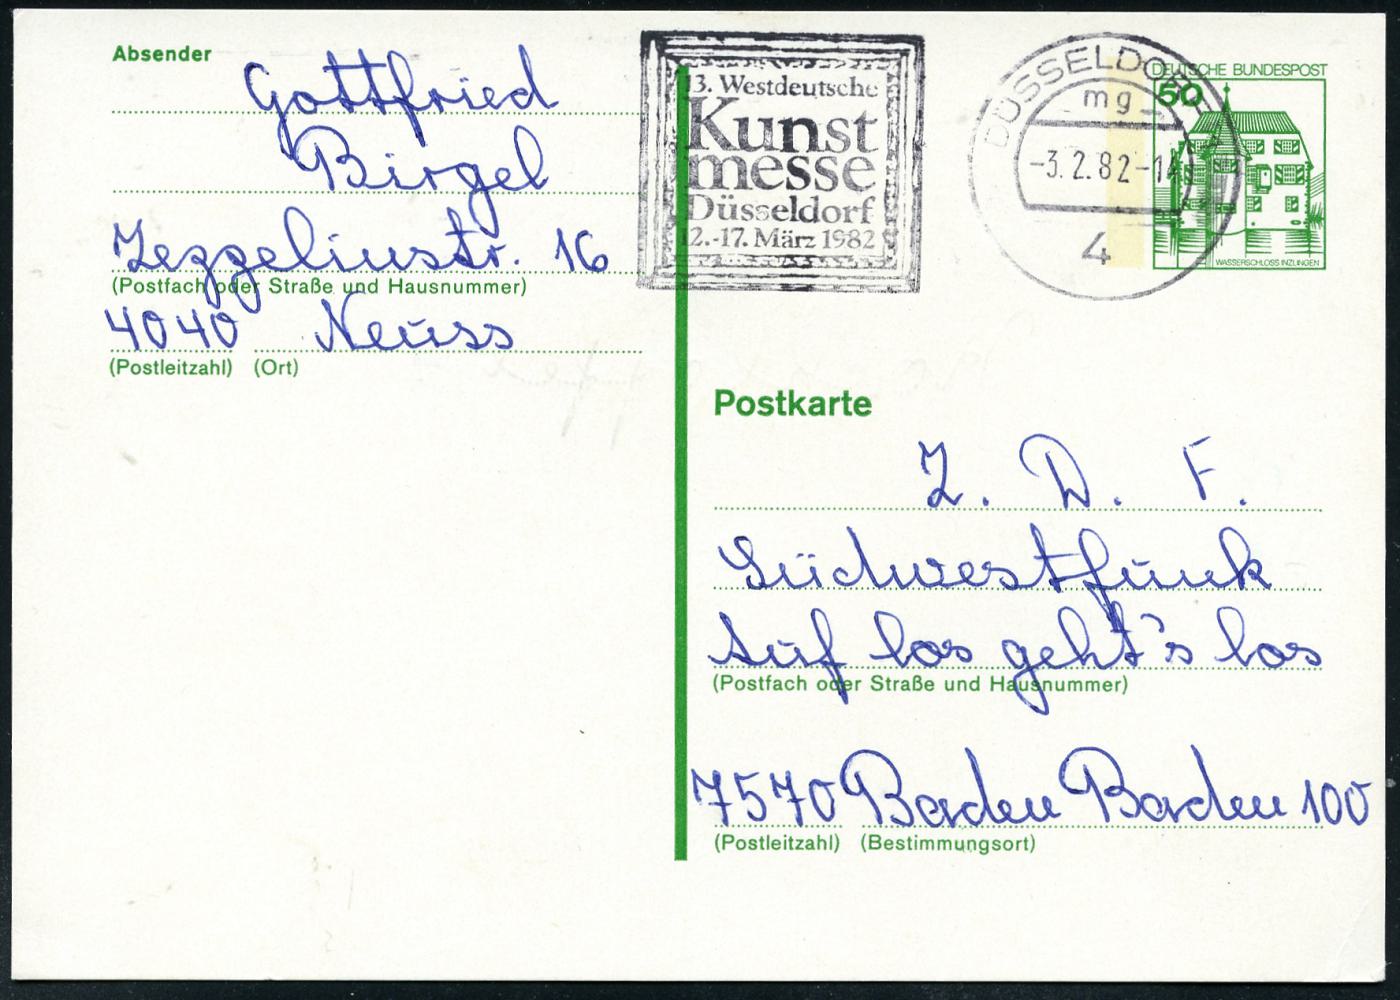 Absender
Gottfried
Birgel
Zeppelinstr. 16
(Postfach oder Straße und Hausnummer)
4040 Neuss
(Postleitzahl) (Ort)
3. Westdeutsche
Kunst
messe
Düsseldorf
12.-17. März 1982
DÜSSELDORF
mg
-3.2.82-14
4
DEUTSCHE BUNDESPOST
60
WASSERSCHLOSS INZLINGEN
Postkarte
Z. D. F.
Südwestfunk
Auf los geht's los
(Postfach oder Straße und Hausnummer)
7570 Baden Baden 100
(Postleitzahl) (Bestimmungsort)